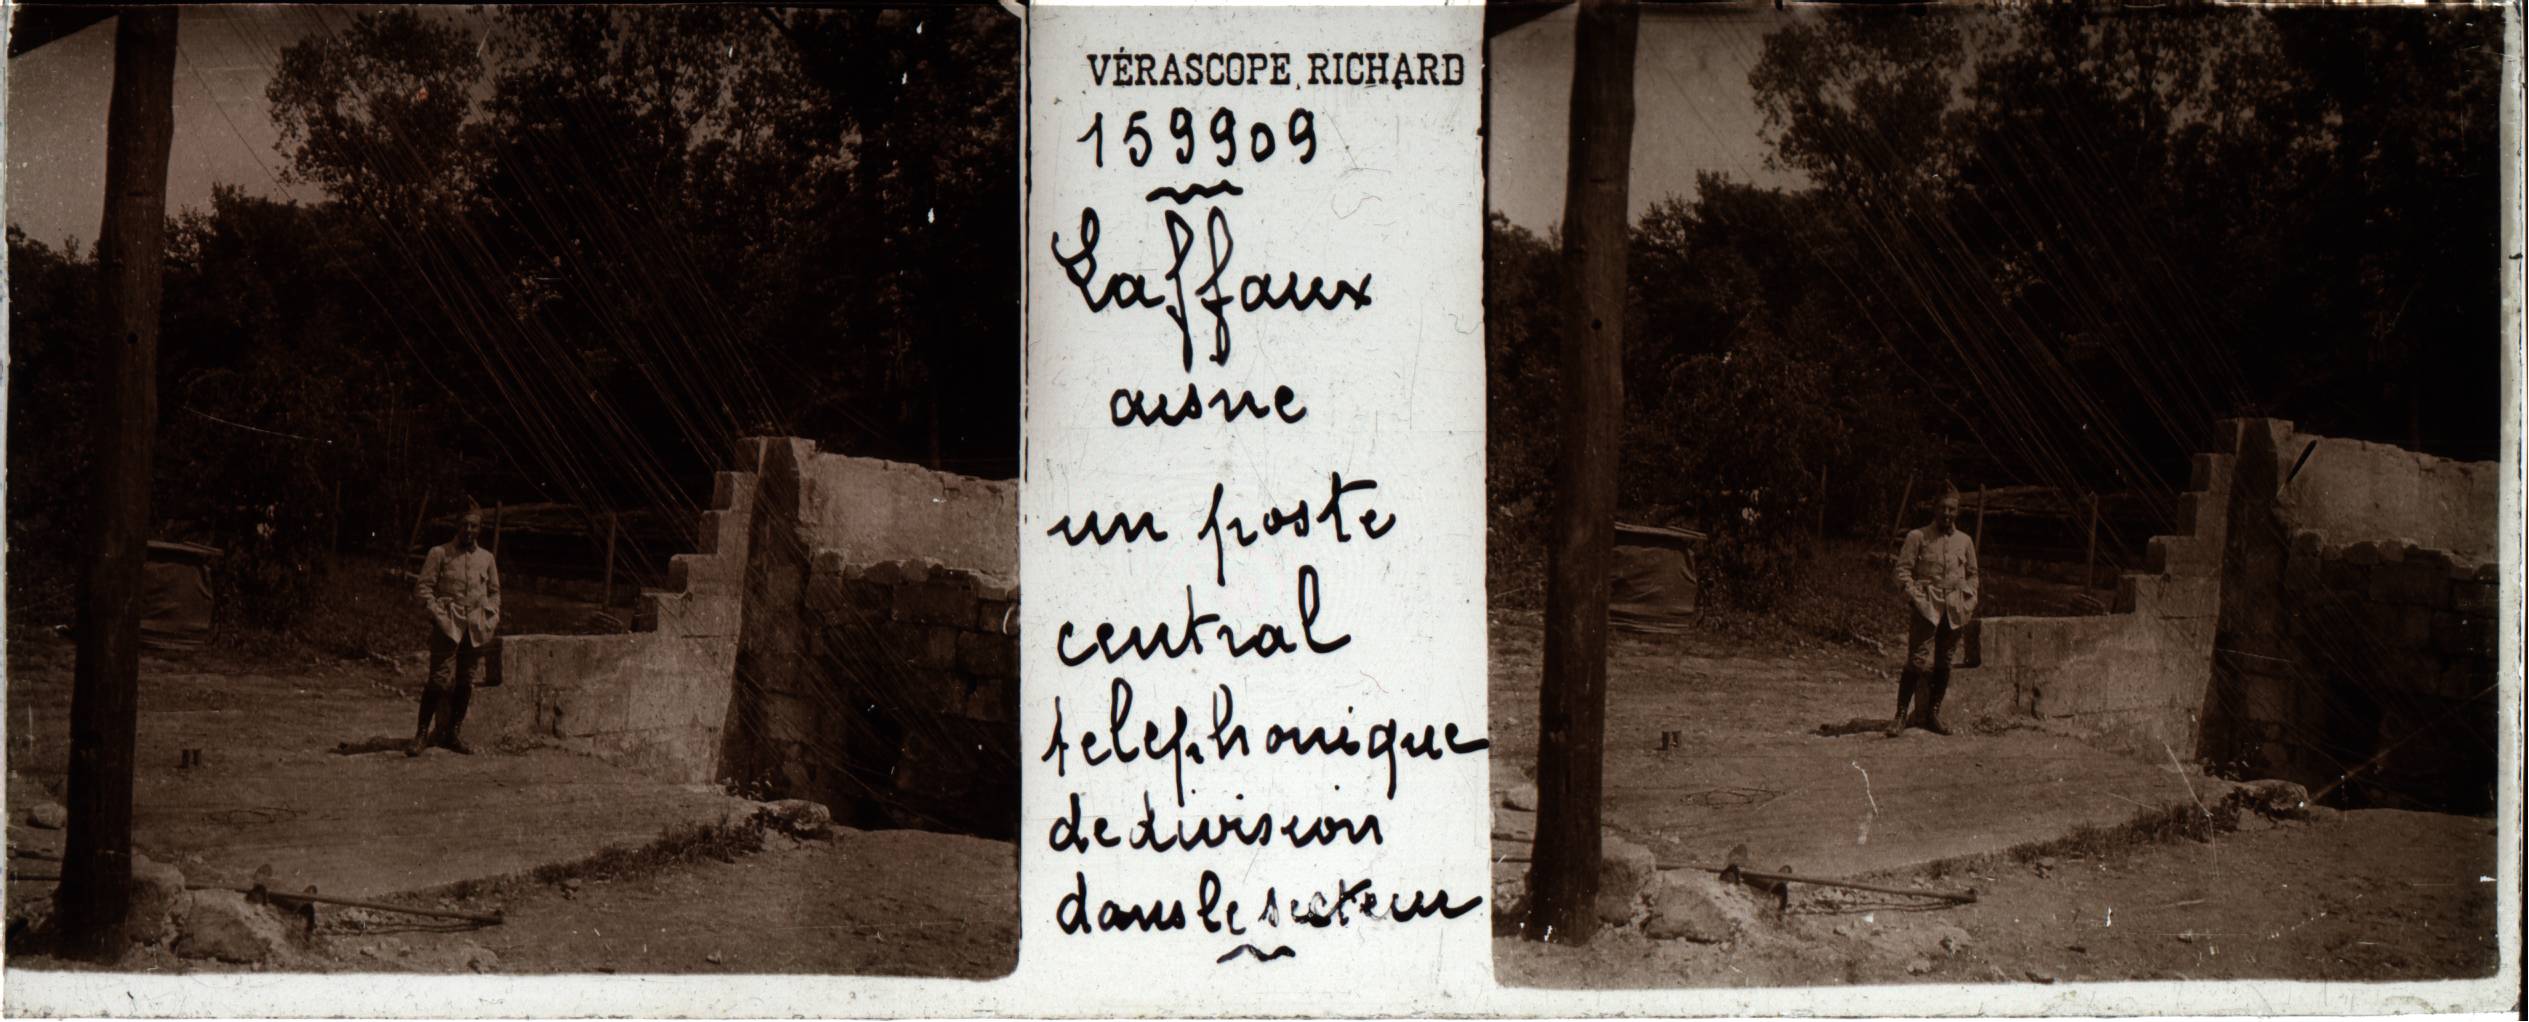 VÉRASCOPE RICHARD
159909
Laffaux
aisne
un poste
central
telephonique
de division
dans le secteur